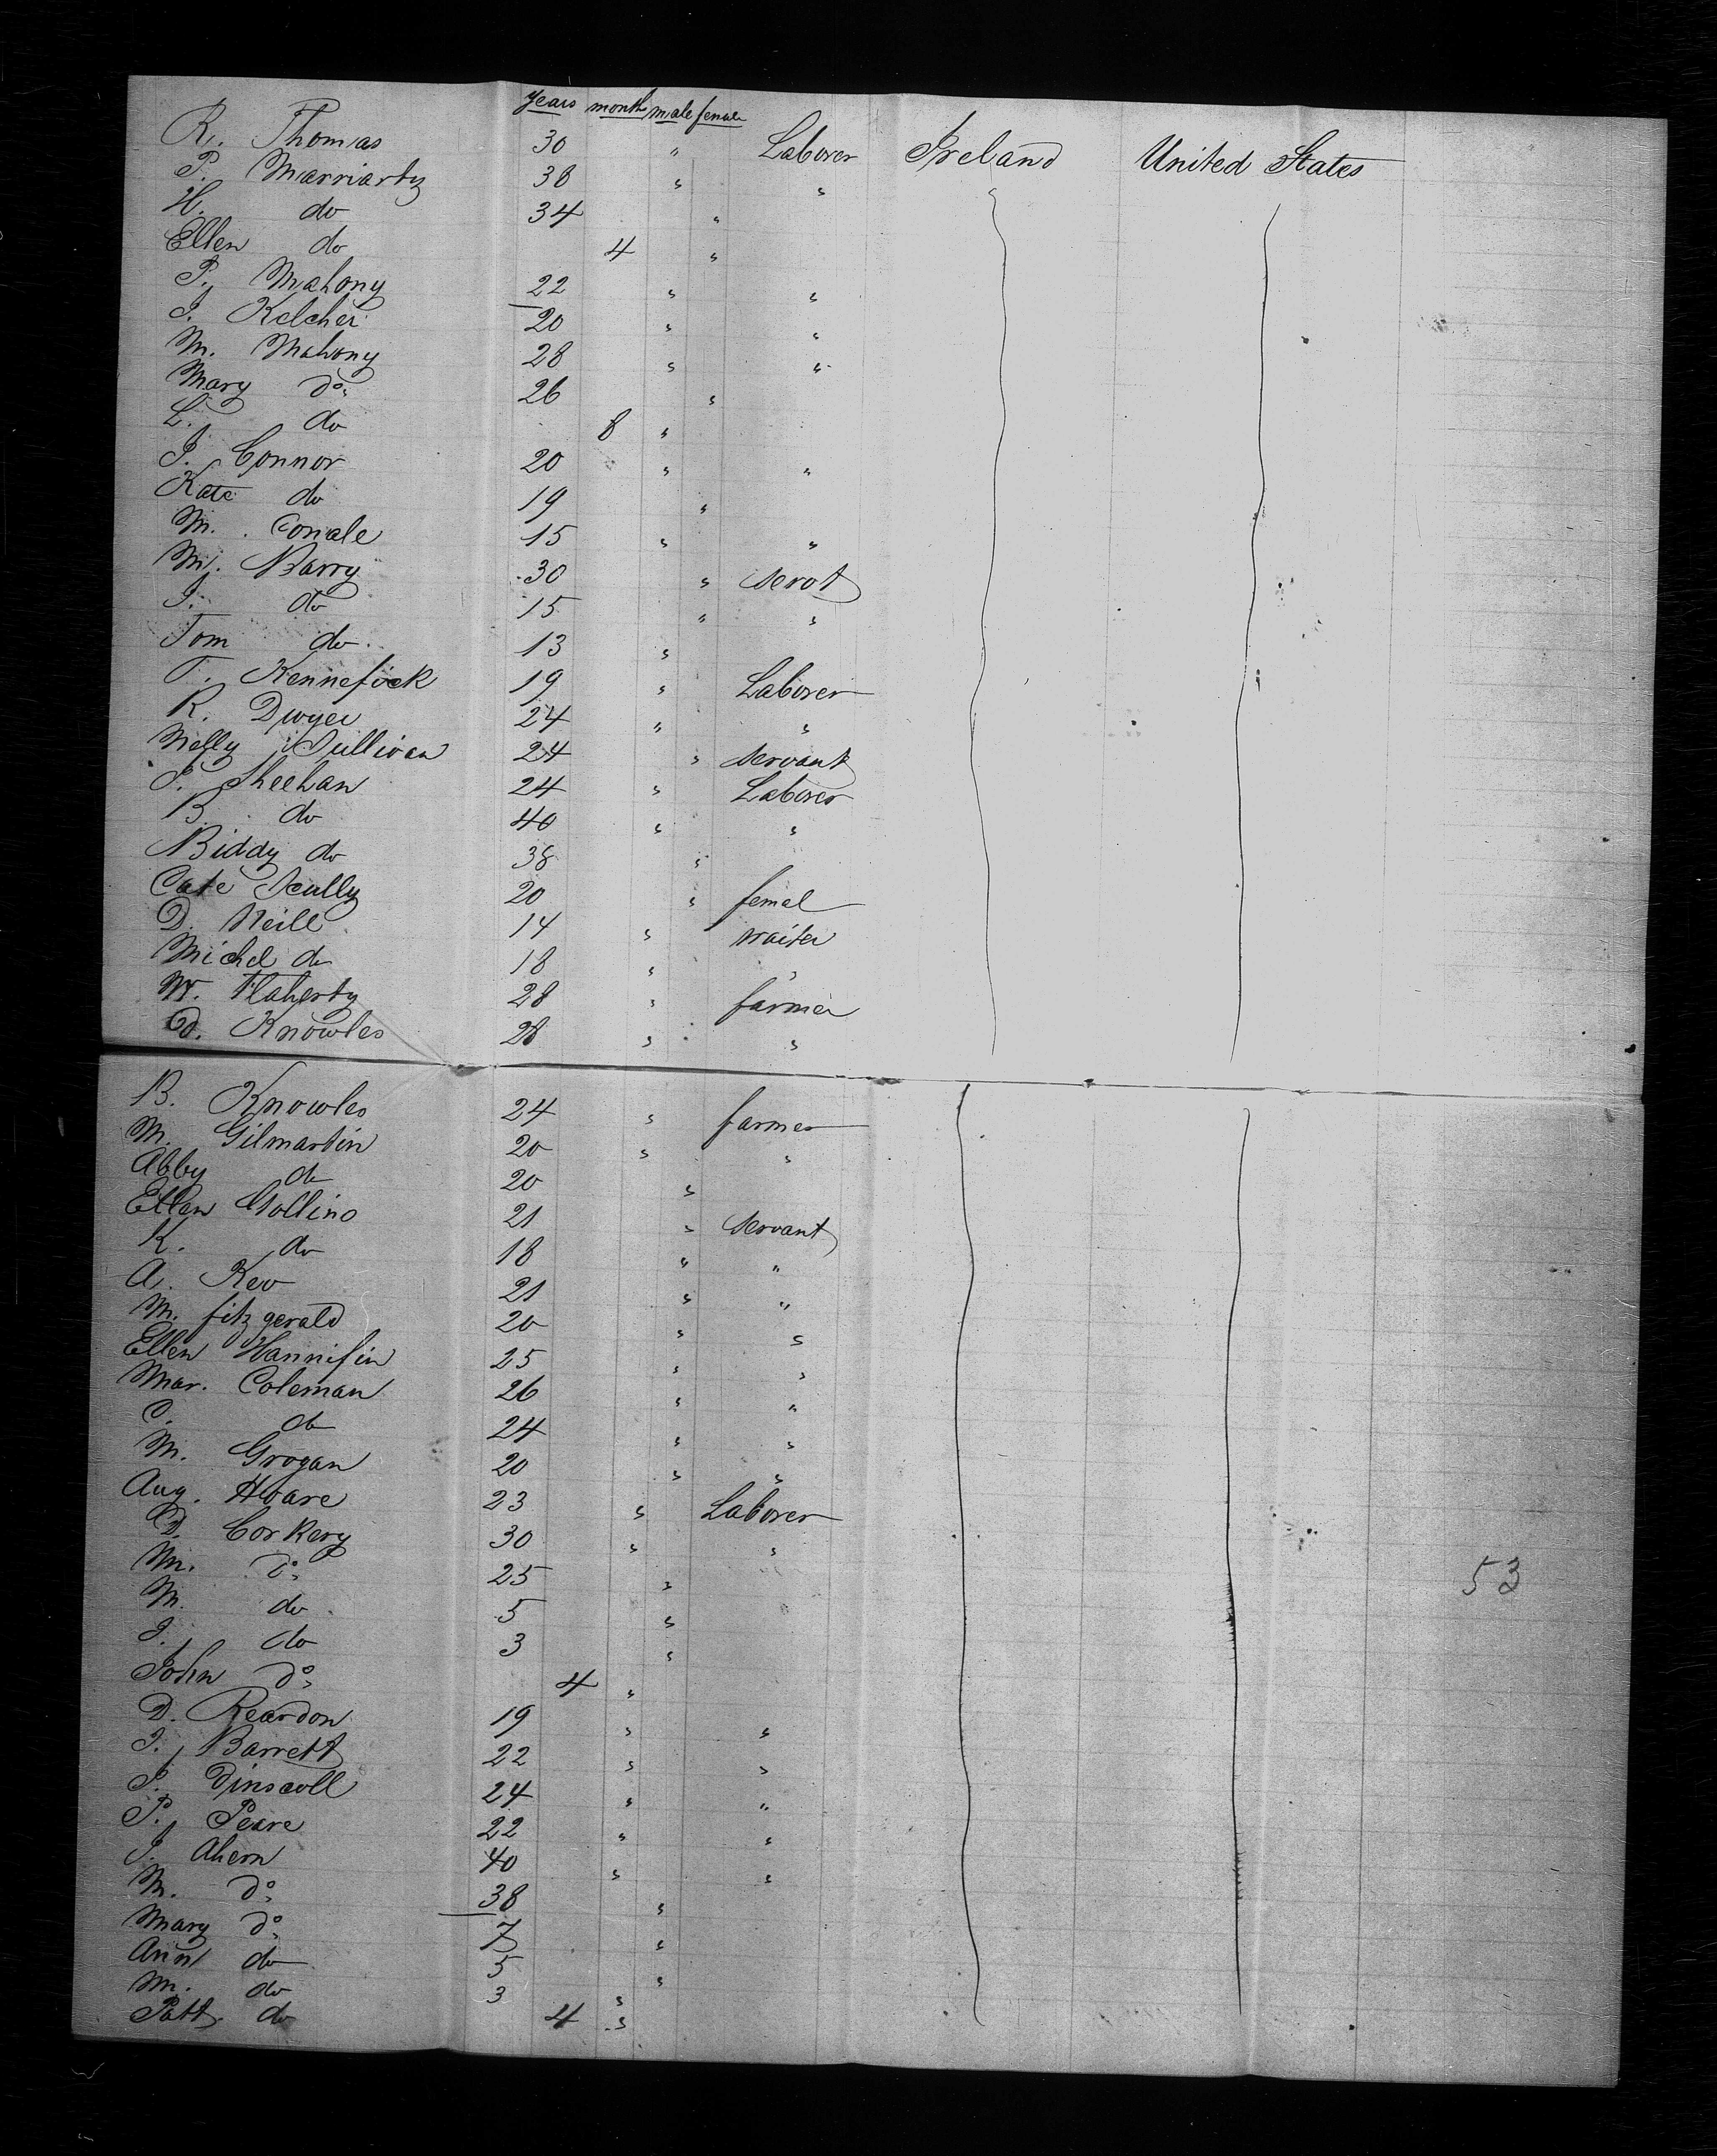 years month male female
R. Thomas 30 " Laborer Ireland United States
P. Marriarty 38 " "
H. do 34 "
Ellen do 4 "
P. Mahony 22 " "
J. Kelcher 20 " "
M. Mahony 28 " "
Mary do 26 "
L. do 8 "
J. Connor 20 " "
Kate do 19 "
M. Comale 15 " "
M. Barry 30 " Servt
J. do 15 " "
Tom do 13 "
T. Kennefick 19 " Laborer
R. Dwyer 24 " "
Nelly Sullivan 24 " Servant
J. Sheehan 24 " Laborer
B. do 40 " "
Biddy do 38 "
Cate Scully 20 " femal
D. Neill 14 " waiter
Michel do 18 " "
W. Flaherty 28 " farmer
D. Knowles 28 " "
B. Knowles 24 " farmer
M. Gilmartin 20 " "
Abby do 20 "
Ellen Gollino 21 " Servant
K. do 18 " "
A. Keo 21 " "
M. fitzgerald 20 " "
Ellen Hannifin 25 " "
Mar. Coleman 26 " "
C. do 24 " "
M. Grogan 20 " "
Aug. Hoare 23 " Laborer
D. Corkery 30 " "
M. do 25 "
M. do 5 "
J. do 3 "
John do 4 "
D. Reardon 19 " "
J. Barrett 22 " "
J. Dinscoll 24 " "
P. Peare 22 " "
J. Ahern 40 " "
M. do 38 "
Mary do 7 "
Ann do 5 "
M. do 3 "
Patt. do 4 "
53